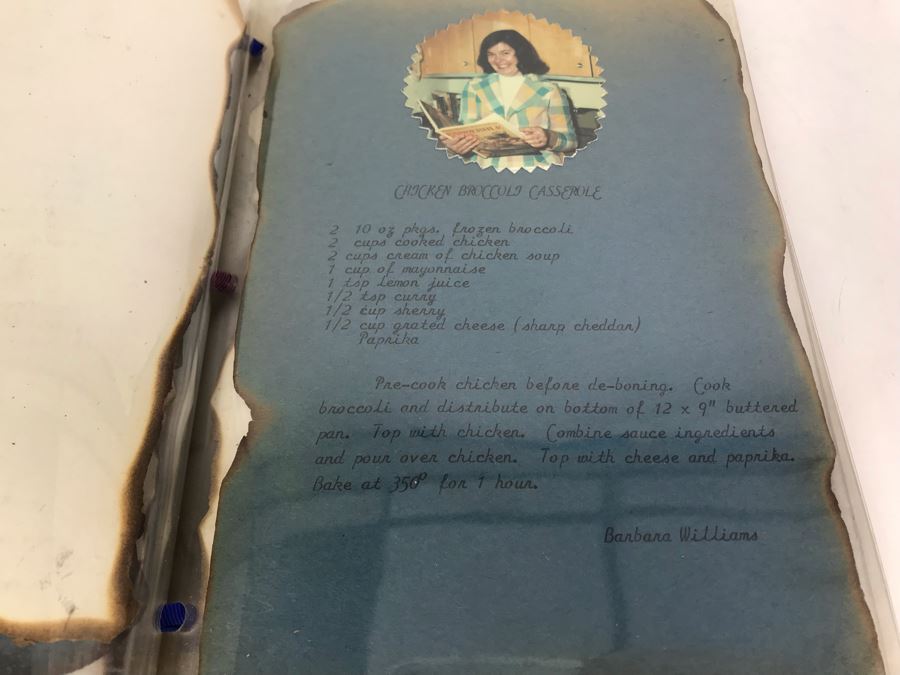 CHICKEN BROCCOLI CASSEROLE
2 10 oz pkgs. frozen broccoli
2 cups cooked chicken
2 cups cream of chicken soup
1 cup of mayonnaise
1 tsp lemon juice
1/2 tsp curry
1/2 cup sherry
1/2 cup grated cheese (sharp cheddar)
Paprika
Pre-cook chicken before de-boning. Cook
broccoli and distribute on bottom of 12 x 9" buttered
pan. Top with chicken. Combine sauce ingredients
and pour over chicken. Top with cheese and paprika.
Bake at 350° for 1 hour.
Barbara Williams